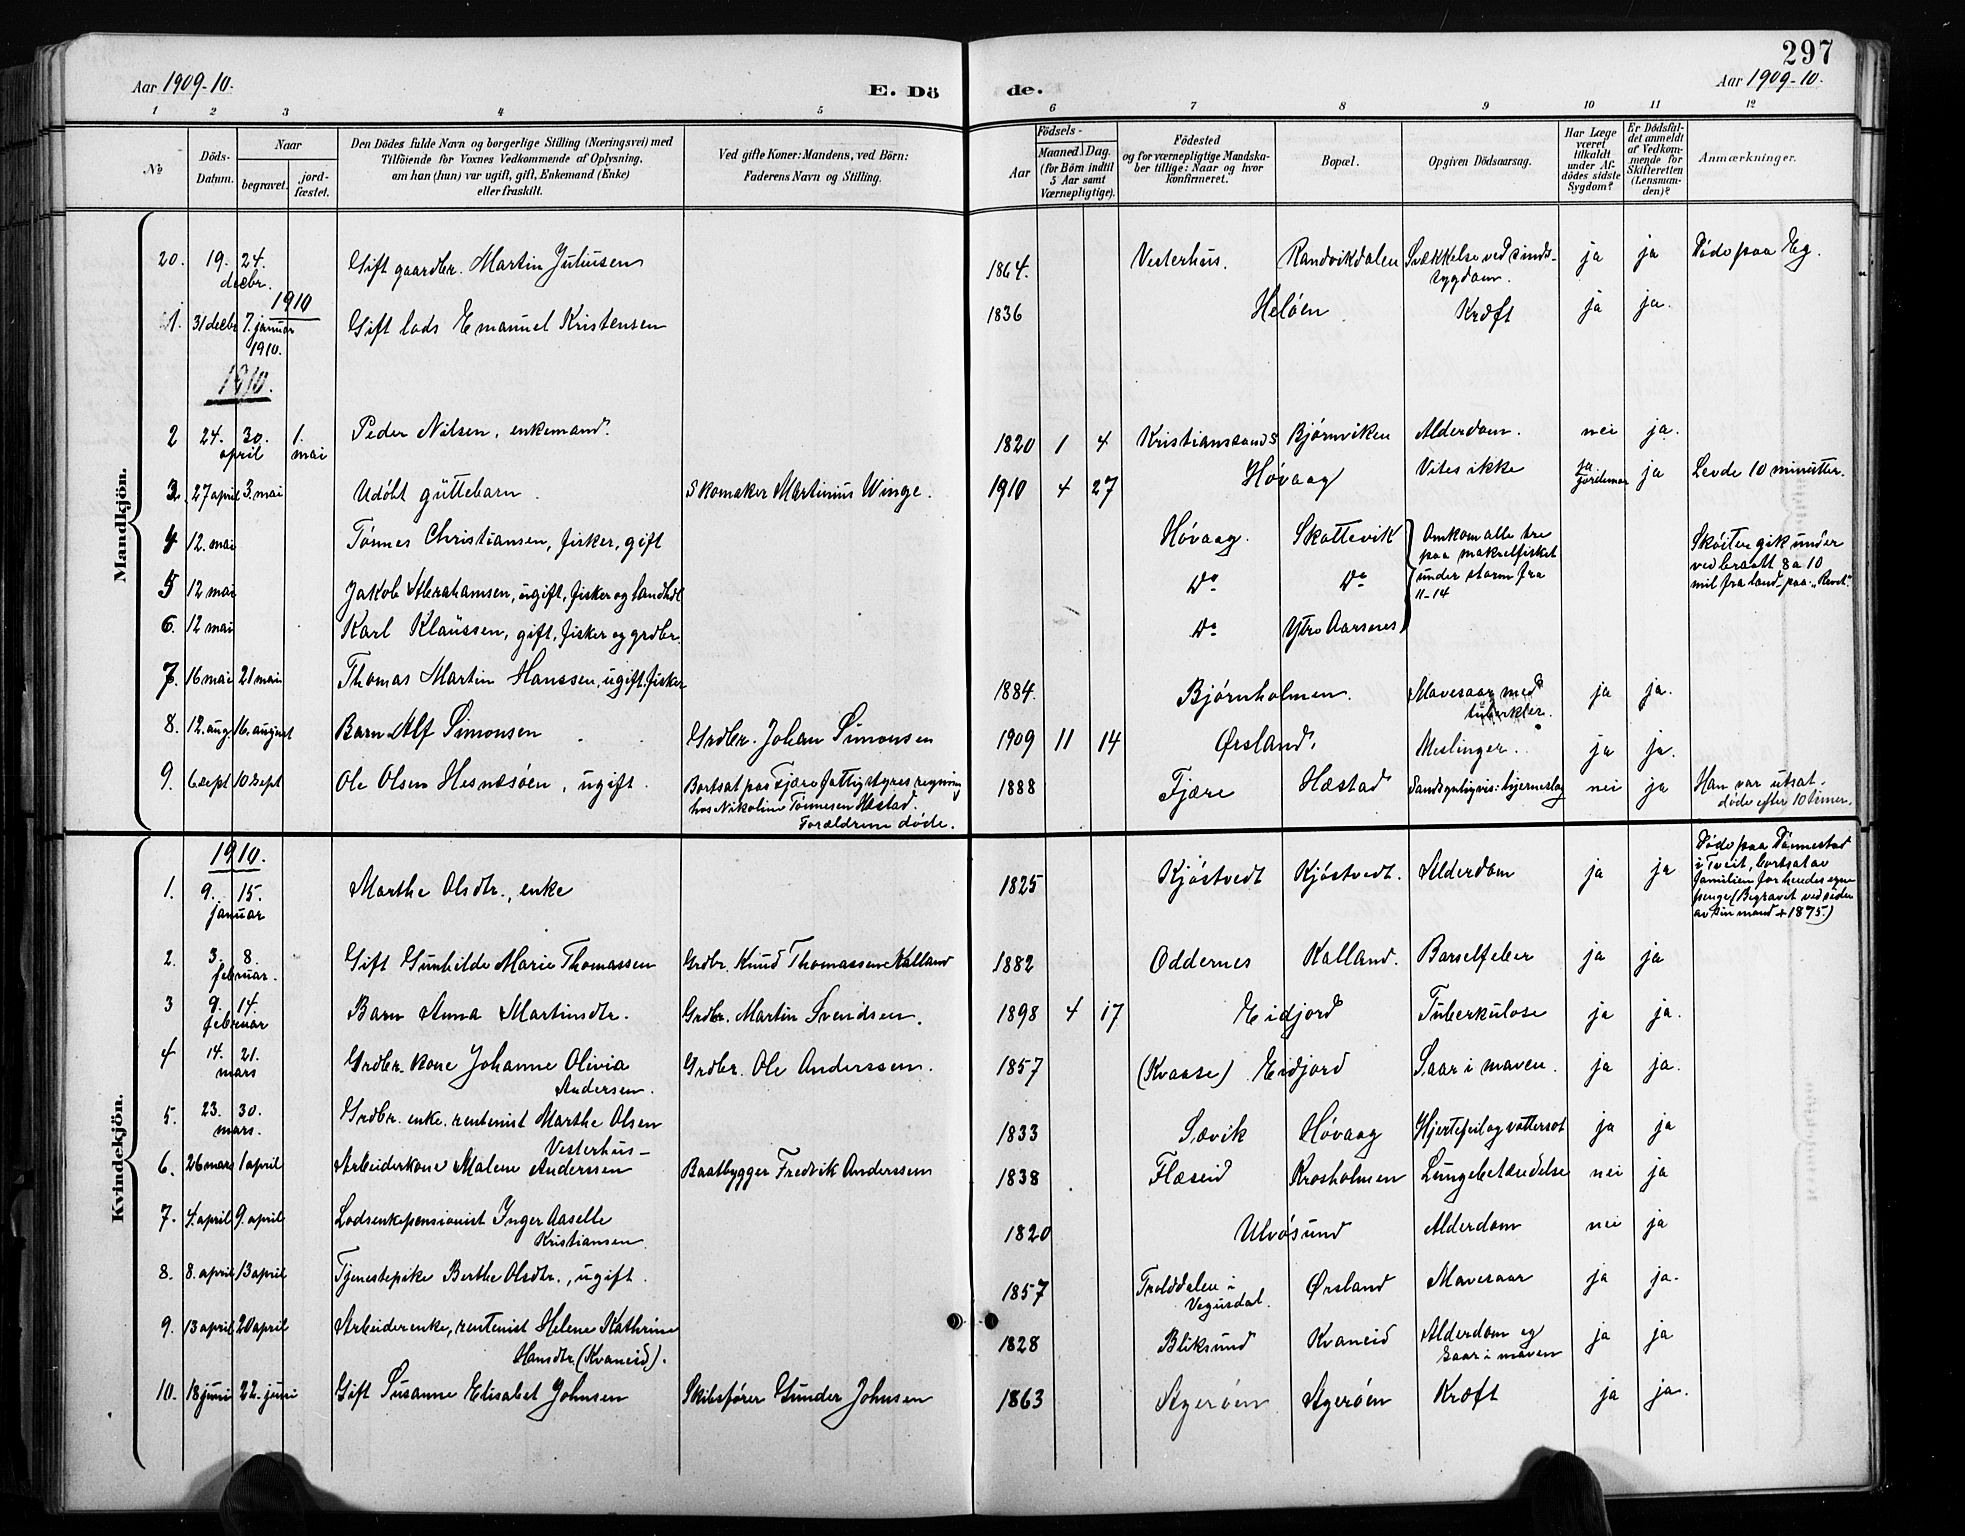 297
Aar 1909-10. E. Dö de. Aar 1909-10.
1 2 3 4 5 6 7 8 9 10 11 12
No
Döds-Datum.
Naar
begravet.
jord-fæstet.
Den Dödes fulde Navn og borgerlige Stilling (Næringsvei) med
Tilföiende for Voxnes Vedkommende af Oplysning,
om han (hun) var ugift, gift, Enkemand (Enke)
eller fraskilt.
Ved gifte Koner: Mandens, ved Börn:
Faderens Navn og Stilling.
Födsels-
Aar
Maaned. Dag.
(for Börn indtil
5 Aar samt
Værnepligtige).
Födested
og for værnepligtige Mandska-
ber tillige: Naar og hvor
konfirmeret.
Bopæl.
Opgiven Dödsaarsag.
Har Læge
været
tilkaldt
under Af-
dödes sidste
Sygdom?
Er Dödsfal-
det anmeldt
af Vedkom-
mende for
Skifteretten
(Lensman-
den)?
Anmærkninger.
Mandkjön.
20. 19. 24. decbr. Gift gaardbr. Martin Juliusen 1864. Vesterhus. Randvikdalen Svækkelse ved sinds-
sygdom. ja ja Døde paa Eg.
1910
1. 31 decbr 7. januar 1910. Gift lods Emanuel Kristensen 1836 Heløen Kræft ja ja.
1910.
2 24. 30. april 1. mai Peder Nilsen, enkemand. 1820 1 4 Kristianssands Bjørnviken Alderdom. nei ja.
3. 27 april 3. mai Udøbt guttebarn. Skomaker Martinius Winge. 1910 4 27 Høvaag Vites ikke ja jordemor ja Levde 10 minutter.
4 12. mai Tønnes Christiansen, fisker, gift Høvaag. Skottevik Omkom alle tre
paa makrelfisket
under storm fra
11-14
Skøiten gik under
ved braatt 8 a 10
mil fra land paa "Revet".
5 12 mai Jakob Abrahamsen, ugift, fisker og landhdl Do Do
6. 12 mai Karl Klaussen, gift, fisker og grdbr. Do Ytre Aarsnes
7. 16 mai 21 mai Thomas Martin Hanssen, ugift, fisker 1884. Bjørnholmen. Mavesaar med
tuberkler. ja ja.
8. 12. aug. 16. august Barn Alf Simonsen Grdbr. Johan Simonsen 1909 11 14 Ørsland. Meslinger. ja ja.
9. 6 sept 10 sept Ole Olsen Hesnæsøen, ugift. Bortsat paa Fjære fattigstyres regning
hos Nikoline Tønnesen Hæstad.
Forældrene døde.
1888 Fjære Hæstad Sandsynligvis: hjerneslag nei ja Han var utsat.
døde efter 10 timer.
Kvindekjön.
1910.
1. 9. 15. januar Marthe Olsdtr., enke 1825 Kjøstvedt Kjøstvedt. Alderdom ja ja Døde paa Tønnestad
i Tveit, bortsat av
familien for hendes egne
penge (Begravet ved siden
av sin mand + 1875.)
2. 3. 8. februar. Gift Gunhilde Marie Thomassen Grdbr. Knud Thomassen Kalland 1882 Oddernes Kalland. Barselfeber ja ja
3 9. 14. februar Barn Anna Martinsdtr. Grdbr. Martin Svendsen. 1898 4 17 Eidjord Tuberkulose ja ja.
4 14. 21. mars Grdbr. kone Johanne Olivia
Andersen. Grdbr. Ole Anderssen. 1857 (Kvaase) Eidjord Saar i maven. ja ja.
5. 23. 30. mars. Grdbr. enke. rentenist Marthe Olsen
Vesterhus- 1833 Sævik Høvaag Hjertefeil og vattersot ja ja
6. 26 mars 1 april Arbeiderkone Malene Anderssen Baatbygger Fredrik Anderssen 1838 Flæseid Krosholmen Lungebetændelse nei ja
7. 4. april 9. april Lodsenkepensionist Inger Aaselle
Kristiansen. 1820 Ulvøsund Alderdom nei ja
8. 8. april 13 april Tjenestepike Berthe Olsdtr., ugift. 1857 Trolddalen i
Vegusdal. Ørsland Mavesaar ja ja.
9. 13 april 20 april Arbeiderenke, rentenist Helene Kathrine
Hansdtr. (Kvaneid). 1828 Bliksund Kvaneid Alderdom og
saar i maven ja ja
10. 18 juni 22. juni Gift Susanne Elisabet Johnsen Skibsfører Gunder Johnsen 1863 Agerøen Agerøen Kræft ja ja.